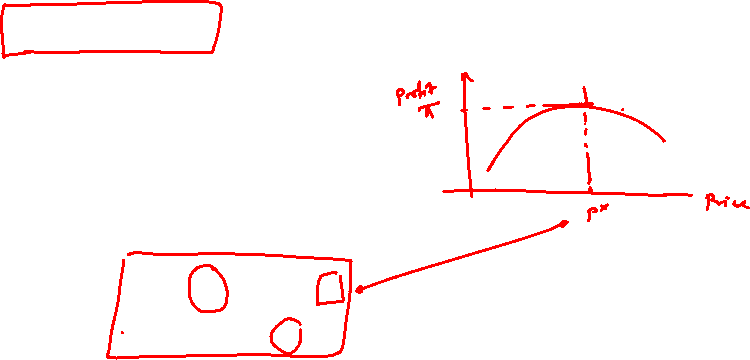 Profit
π
Price
P*